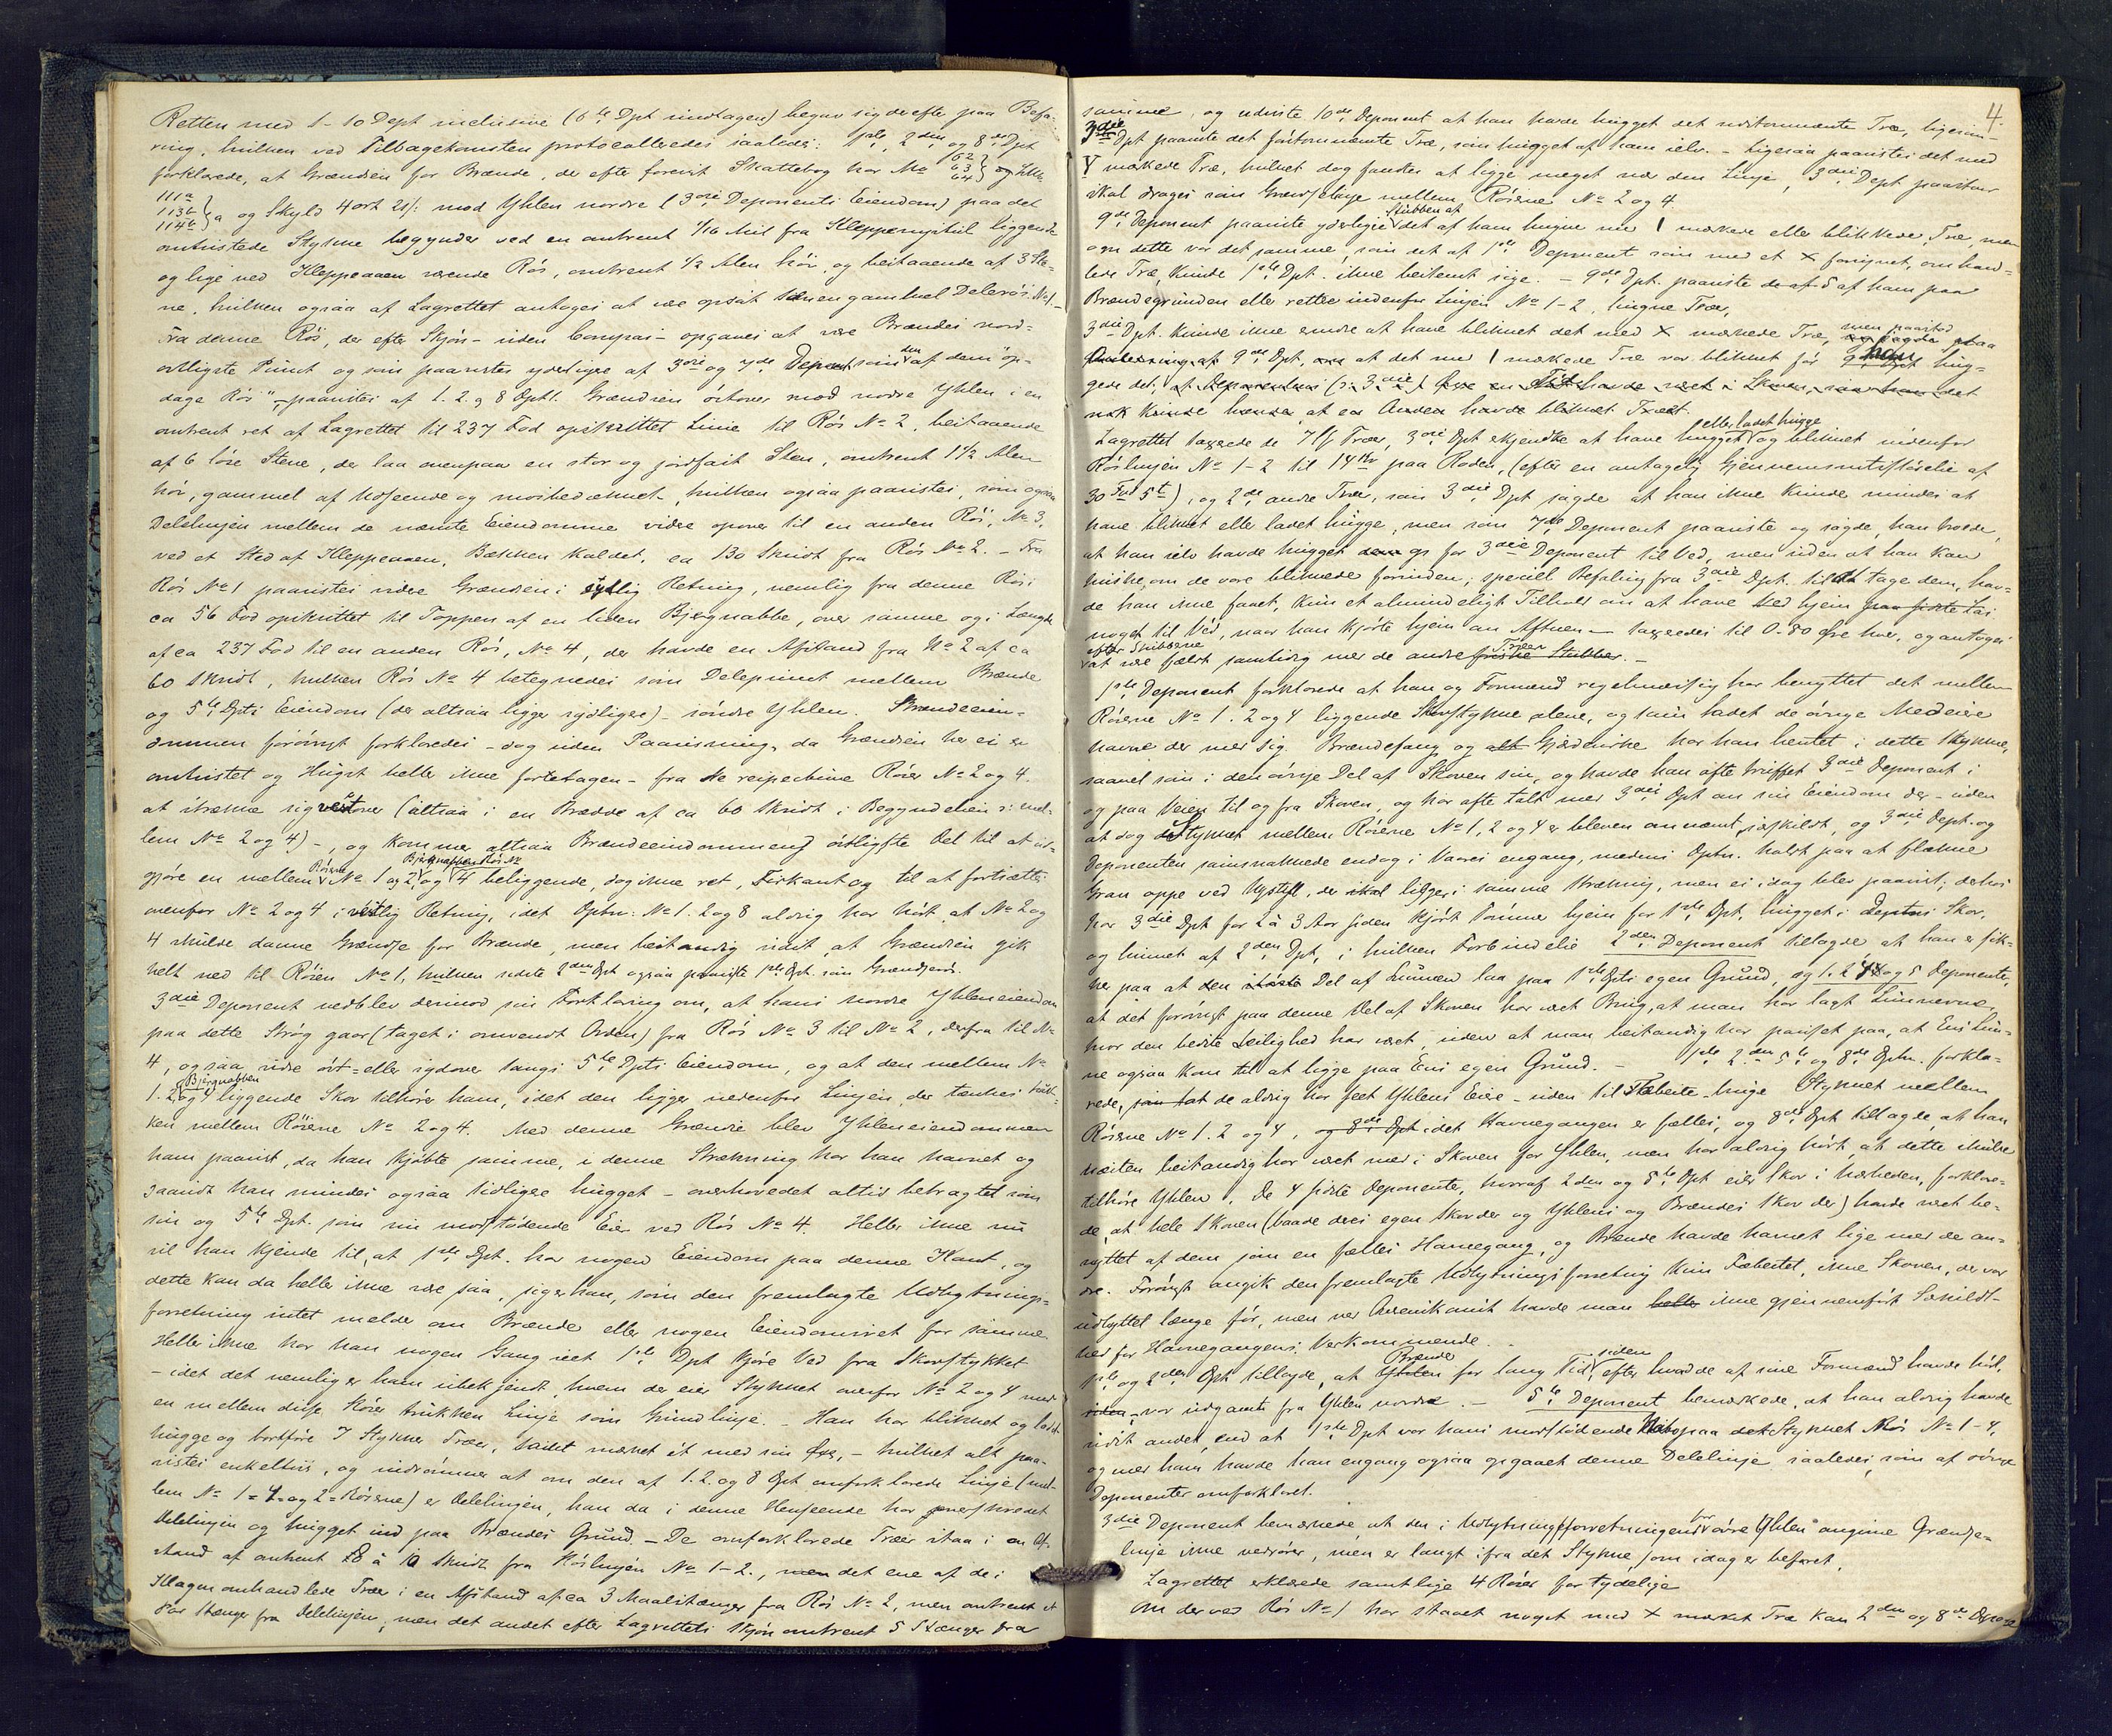 Retten med 1-10 Dept inclusive (6te Dpt indtagen) begav sig derefter paa Befa-
ring, hvilken ved Tilbagekomsten protocolleredes saaledes: 1ste, 2den og 8de Dpt
forklarede, at Grændsen for Brænde, der efter forevist Skattebog har No 62 63 64 og
111a 113b 114b a og Skyld 4 ort 21 s: mod Yhlen nordre (3die Deponents Eiendom) paa det
omtvistede Stykke begynder ved en omtrent 1/16 Mil fra Kleppemyrhul liggende
og lige ved Kleppeaaen værende Rös, omtrent 1/2 Alen höi, og bestaaende af 3 Ste-
ne, hvilken ogsaa af Lagrettet antages at være opsat som en gammel Delerös. No 1. -
Fra denne Rös, der efter Skjön - uden Compas - opgaves at være Brændes nord-
ostligste Punct og som paavistes yderligere af 3die og 7de Depnt som den af dem "op-
dage Rös" - paavistes af 1. 2. og 8 Dptr. Grændsen östover mod nordre Yhlen i en
omtrent ret af Lagrettet til 237 Fod opskrittet Linie til Rös No 2, bestaaende
af 6 löse Stene, der laa ovenpaa en stor og jordfast Sten, omtrent 1 1/2 Alen
höi, gammel af Udseende og mosbedækket, hvilken ogsaa paavistes, som ogsaa
Delelinjen mellem de nævnte Eiendomme videre opover til en anden Rös, No 3,
ved et Sted af Kleppeaaen, Bækken kaldet, ca 130 Skridt fra Rös No 2. - Fra
Rös No 1 paavistes videre Grændsen i sydlig Retning, nemlig fra denne Rös i
ca 56 Fod opskrittet til Toppen af en liden Bjergnabbe, over samme og i Længde
af ca 237 Fod til en anden Rös, No 4, der havde en Afstand fra No 2 af ca
60 Skridt, hvilken Rös No 4 betegnedes som Delepunct mellem Brænde
og 5te Dpts Eiendom (der altsaa ligger sydligere) - söndre Yhlen. Brændeeien-
dommen forövrigt forklaredes - dog uden Paavisning, da Grændsen her ei er
omtvistet og Hugst heller ikke foretagen - fra de respective Röser No 2 og 4
at strække sig vestover (altsaa i en Bredde af ca 60 Skridt i Begyndelsen : mel-
lem No 2 og 4) -, og kommer altsaa Brændeeiendommens östligste Del til at ud-
gjöre en mellem Röserne No 1 og 2, og Bjergnabben Rös No 4 beliggende, dog ikke ret, Firkant og til at fortsætte
ovenfor No 2 og 4 i vestlig Retning, idet Dptn: No 1. 2 og 8 aldrig har hört, at No 2 og
4 skulde danne Grændse for Brænde, men bestandig vidst, at Grændsen gik
helt ned til Rösen No 1, hvilken sidste 2den Dpt ogsaa paaviste 1ste Dpt. som Grændserös.
3die Deponent vedblev derimod sin Forklaring om, at hans nordre Yhleneiendom
paa dette Strög gaar (taget i omvendt Orden) fra Rös No 3 til No 2, derfra til No
4, og saa videre öst- eller sydover langs 5te Dpts Eiendom, og at den mellem No
1. 2 og Bjergnabben og 4 liggende Skov tilhörer ham, idet den ligger nedenfor Linjen, der tænkes truk-
ken mellem Röserne No 2 og 4. Med denne Grændse blev Yhleneiendommen
ham paavist, da han kjöbte samme, i denne Strækning har han havnet og
saavidt han mindes ogsaa tidligere hugget - overhovedet altid betragtet som
sin og 5te Dpt. som sin modstödende Eier ved Rös No 4. Heller ikke nu
vil han kjende til, at 1ste Dpt. har nogen Eiendom paa denne Kant, og
dette kan da heller ikke være saa, siger han, som den fremlagte Udlytnings-
forretning intet melder om Brænde eller nogen Eiendomsret for samme.
Heller ikke har han nogen Gang seet 1ste Dpt kjöre Ved fra Skovstykket
- idet det nemlig er ham ubekjendt, hvem der eier Stykket ovenfor No 2 og 4 med
en mellem disse Röser trukken Linje som Grundlinje. - Han har blinket og ladet
hugge og bortföre 7 Stykker Træer, baidet mærket ét med sin Öxe, - hvilket alt paa-
vistes enkeltvis, og indrömmer at om den af 1. 2. og 8 Dpt omforklarede Linje (mel-
lem No 1 = 4 = og 2 = Röserne) er Delelinjen, han da i denne Henseende har overskredet
Delelinjen og hugget ind paa Brændes Grund. - De omforklarede Træer staa i en Af-
stand af omtrent 8 à 10 Skridt fra Röslinjen No 1-2., men det ene af de i
Klagen omhandlede Træer i en Afstand af ca 3 Maalstænger fra Rös No 2, men omtrent et
Par Stænger fra Delelinjen, men det andet efter Lagrettets Skjön omtrent 5 Stænger fra
4.
samme, og udviste 10de Deponent at han havde hugget det sidstomnævnte Træ, ligesom
3die Dpt paaviste det förstomnævnte Træ, som hugget af ham selv. - Ligesaa paavistes det med
Y mærkede Træ, hvilket dog fandtes at ligge meget nær den Linje, 3die Dept paastaar
skal drages som Grændselinje mellem Röserne No 2 og 4.
9de Deponent paaviste yderligere Stubben af det af ham hugne med I mærkede eller blinkede Træ, men
om dette var det samme, som det af 1ste Deponent som med et X forsynet, omhand-
lede Træ, kunde 1ste Dpt. ikke bestemt sige. - 9de Dpt. paaviste de af 5 af ham paa
Brændegrunden eller rettere indenfor Linjen No 1-2, hugne Træer,
3die Dpt. kunde ikke erindre at have blinket det med X mærkede Træ, men paastod og sagde paa
Anledning af 9de Dpt, at det med I mærkede Træ var blinket för han hug-
gede det, at Deponentens (: 3die) Öxe en Tid havde været i Skoven, saa han det
nok kunde hænde, at en Anden havde blinket Træet.
Lagrettet taxerede de 7 Træer, 3die Dpt erkjendte at have hugget eller ladet hugge og blinket indenfor
Röslinjen No 1-2 til 14 Kr paa Roden, (efter en antagelig Gjennemsnitstörrelse af
30 Fod 5t), og 2de andre Træer, som 3die Dpt sagde at han ikke kunde mindes at
have blinket eller ladet hugge, men som 7de Deponent paaviste og sagde, han troede,
at han selv havde hugget dem op for 3die Deponent til Ved, men uden at han kan
huske, om de vare blinkede forinden; speciel Befaling fra 3die Dpt. til at tage dem, hav-
de han ikke faaet, kun et almindeligt Tilhold om at have Ved hjem paa sidste Læs
noget til Ved, naar han kjörte hjem om Aftnen - taxeredes til 0.80 Öre hver, og antoges
efter Stubberne at være fældt samtidig med de andre Træer friske Stubber. -
1ste Deponent forklarede at han og Formænd regelmæssig har benyttet det mellem
Röserne No 1. 2 og 4 liggende Skovstykke alene, og kun ladet de övrige Medeiere
havne der med sig. Brændefang og alt Gjærdevirke har han hentet i dette Stykke,
saavel som i den övrige Del af Skoven sin, og havde han ofte truffet 3die Deponent i
og paa Veien til og fra Skoven, og har ofte talt med 3die Dpt om sin Eiendom der - uden
at dog Stykket mellem Röserne No 1, 2 og 4 er bleven omnævnt særskildt, og 3die Dept. og
Deponenten samsnakkede endog i Vaares engang, medens Dptn. holdt paa at flække
Gran oppe ved, der skal ligge i samme Strækning, men ei idag blev paavist; derhos
har 3die Dpt for 2 à 3 Aar siden kjört Tömmer hjem for 1ste Dpt. hugget i dennes Skov,
og lunnet af 2den Dpt, i hvilken Forbindelse 2den Deponent tillagde at han er sik-
ker paa at den störste Del af Lunnen laa paa 1ste Dpts egen Grund, og 1. 2 4 og 5 Deponenter,
at det forövrigt paa denne Del af Skoven har været Brug, at man har lagt Lunnerne,
hvor den bedste Leilighed har været, uden at man bestandig har passet paa, at Ens Lun-
ne ogsaa kom til at ligge paa Ens egen Grund. - 1ste 2den 5te og 8de Dptn. forkla-
rede, at de aldrig har seet Yhlens Eiere - uden til Fæbeite - bruge Stykket mellem
Röserne No 1. 2 og 4, og 8de Dpt idet Havnegangen er fælles, og 8de Dpt tillagde, at han
næsten bestandig har været med i Skoven for Yhlen, men har aldrig hört, at dette skulde
tilhöre Yhlen. De 4 sidste Deponenter, hvoraf 2den og 5te Dpt eier Skov i Nærheden, forklare-
de at hele Skoven (baade deres egen Skov der og Yhlens og Brændes Skov der) havde været be-
nyttet af dem som en fælles Havnegang, og Brænde havde havnet lige med de an-
dre. Forövrigt angik den fremlagte Udlytningsforretning kun Fæbeitet, ikke Skoven, der var
udskyttet længe för, men ved havde man heller ikke gjennemfört Særskildt-
hed for Havnegangens Vedkommende.
1ste og 2den Dpt tillagde, at Brænde for lang Tid siden, efter hvad de af sine Formænd havde hört,
var udgaaet fra Yhlen nordre. - 5te Deponent bemærkede, at han aldrig havde
vidst andet, end at 1ste Dpt var hans modstödende Nabo paa det Stykket Rös No 1-4,
og med ham havde han engang ogsaa opgaaet denne Delelinje saaledes, som af övrige
Deponenter omforklaret.
3die Deponent bemærkede, at den i Udlytningsforretningen for "övre Yhlen" angivne Grændse-
linje ikke vedrörer, men er langt ifra det Stykke, som idag er befaret.
Lagrettet erklærede samtlige 4 Röser for tydelige
Om der ved Rös No 1 har staaet noget med X mærket Træ kan 2den og 8de Depone